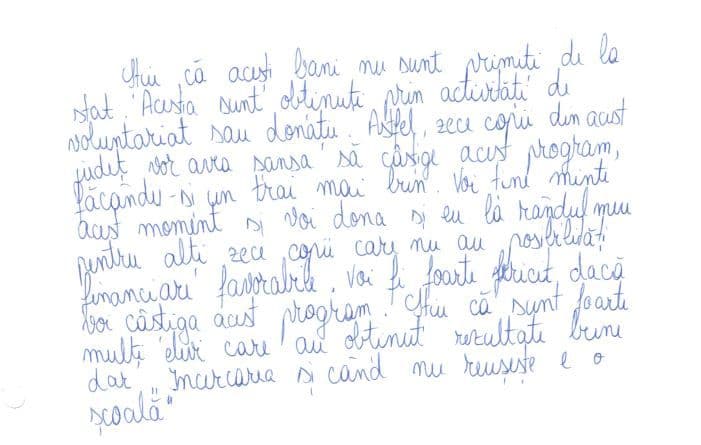 Știu că acești bani nu sunt primiți de la
stat. Aceștia sunt obținuți prin activități de
voluntariat sau donații. Astfel, zece copii din acest
județ vor avea șansa să câșige acest program,
făcându-și un trai mai bun. Voi ține minte
acest moment și voi dona și eu la rândul meu
pentru alți zece copii care nu au posibilități
financiare favorabile. Voi fi foarte fericit dacă
voi câștiga acest program. Știu că sunt foarte
mulți elevi care au obținut rezultate bune
dar „Încercarea și când nu reușește e o
școală"